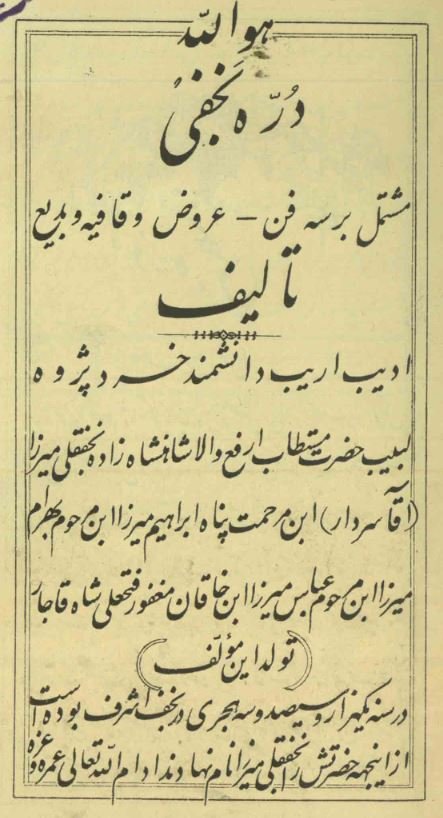 هوالله
دُرّه نجفی
مشتمل بر سه فن – عروض و قافیه و بدیع
تألیف
ادیب اریب دانشمند خرد پژوه
لبیب حضرت مستطاب ارفع والا شاهنشاه زاده نجفقلی میرزا
(آقا سردار) ابن مرحمت پناه ابراهیم میرزا ابن مرحوم بهرام
میرزا ابن مرحوم عباس میرزا ابن خاقان مغفور فتحعلی شاه قاجار
(تولد این مؤلف)
در سنه یکهزار و سیصد و سه هجری در نجف اشرف بوده است
از اینجهه حضرتش را نجفقلی میرزا نام نهادند ادام الله تعالی عمره و عزه